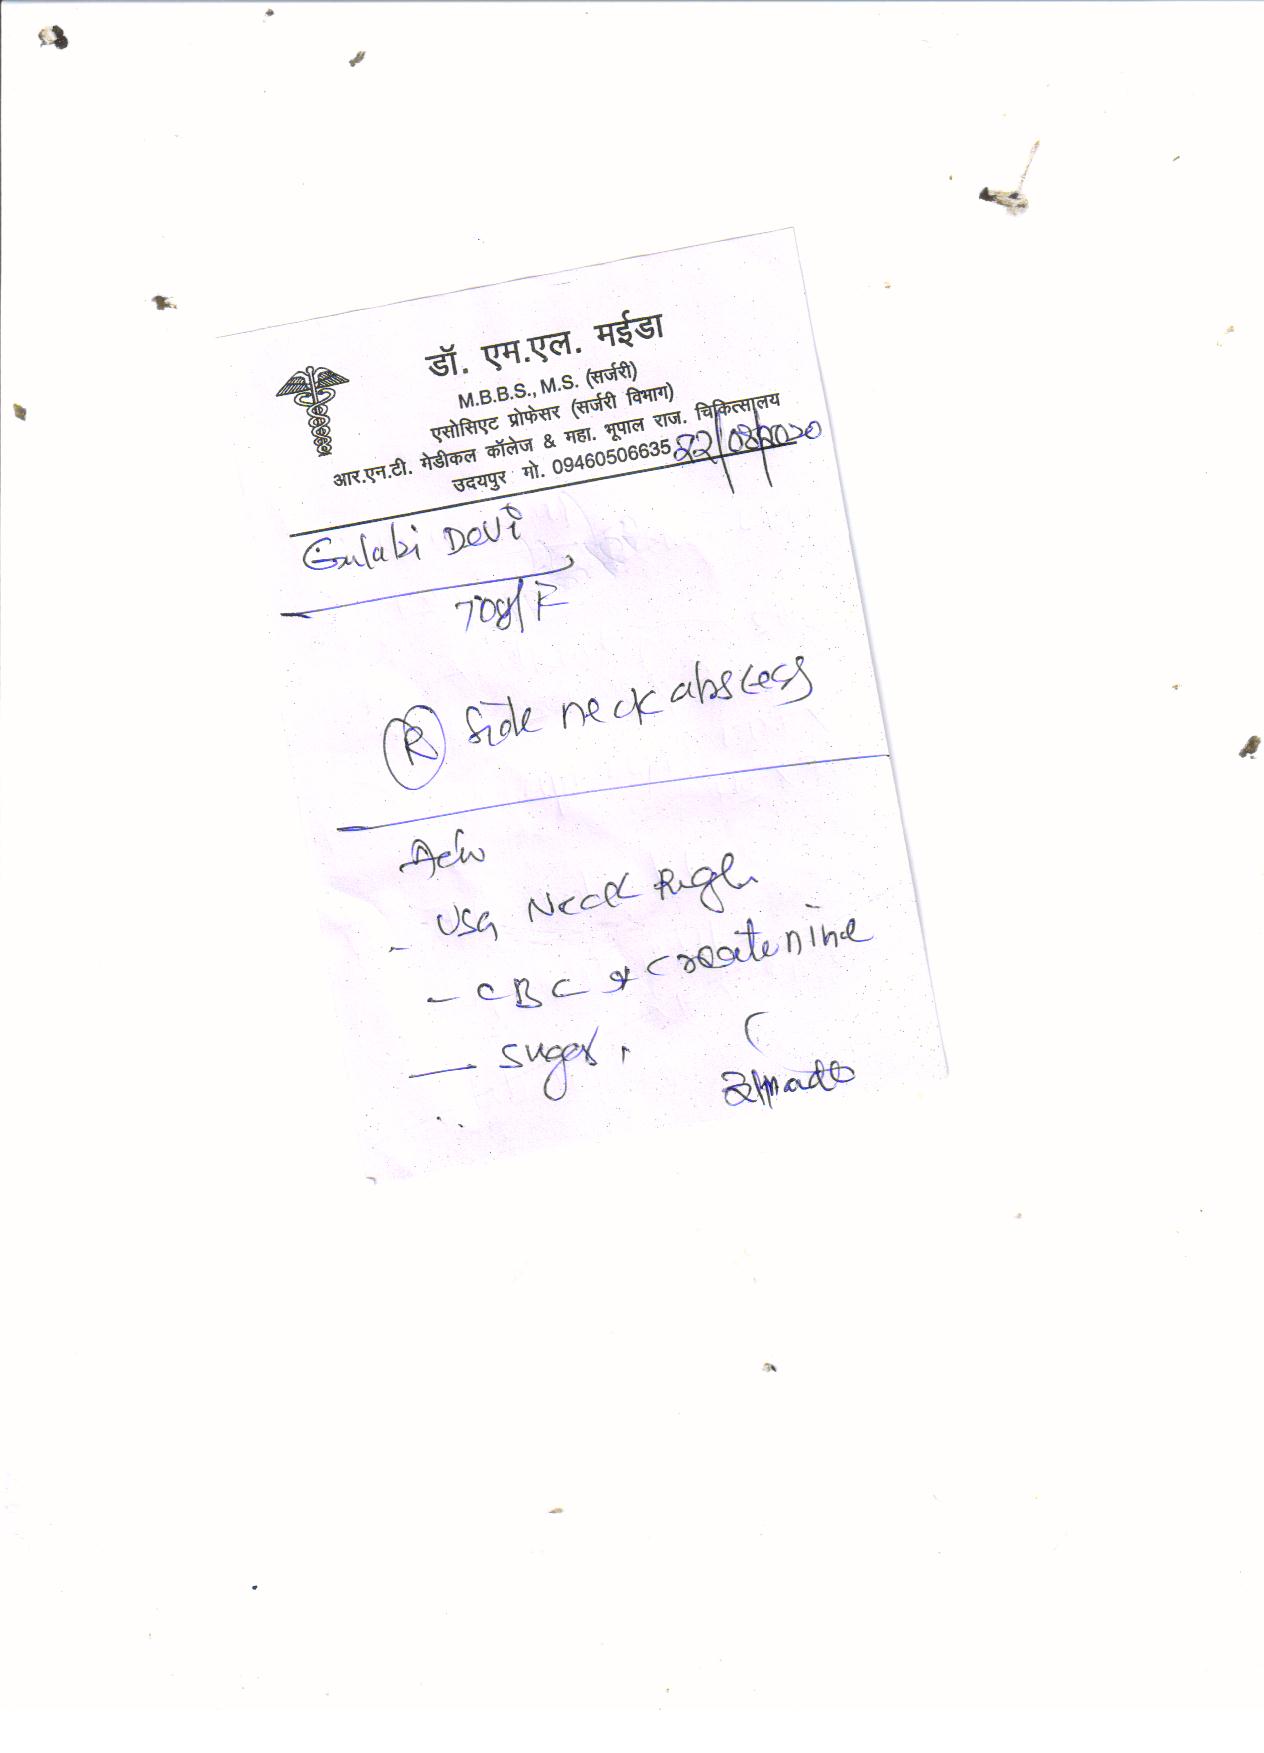 डॉ. एम.एल. मईडा
M.B.B.S., M.S. (सर्जरी)
एसोसिएट प्रोफेसर (सर्जरी विभाग)
आर.एन.टी. मेडीकल कॉलेज & महा. भूपाल राज. चिकित्सालय
उदयपुर मो. 09460506635 22/08/2020
Gulabi Devi
70y/F
(R) Side neck abscess
Adv
- USG Neck Right
- CBC & Createnine
- Sugar